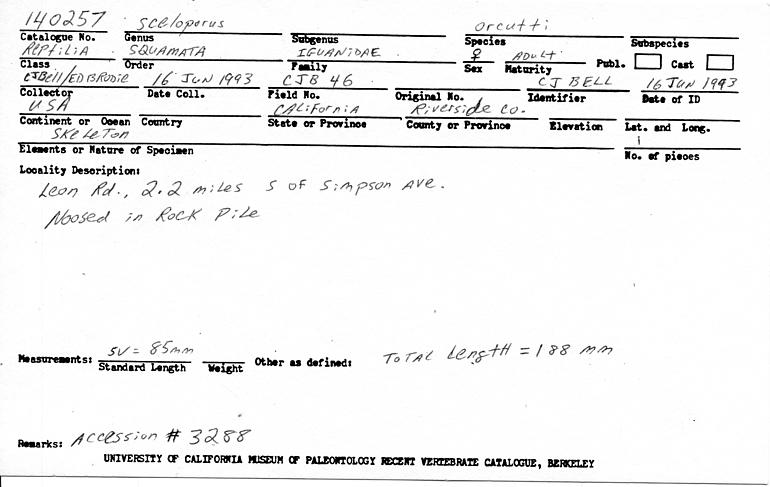 140257 Sceloporus orcutti
Catalogue No. Genus Subgenus Species Subspecies
REPTILIA SQUAMATA IGUANIDAE ♀ ADULT Publ. Cast
Class Order Family Sex Maturity
CJBell/ED BRODIE 16 JUN 1993 CJB 46 CJ BELL 16 JUN 1993
Collector Date Coll. Field No. Original No. Identifier Date of ID
USA CALIFORNIA Riverside Co.
Continent or Ocean Country State or Province County or Province Elevation Lat. and Long.
SKELETON 1
Elements or Nature of Specimen No. of pieces
Locality Description:
Leon Rd., 2.2 miles S of Simpson Ave.
Noosed in Rock Pile
Measurements: SV = 85mm Other as defined: TOTAL Length = 188 mm
Standard Length Weight
Remarks: Accession # 3288
UNIVERSITY OF CALIFORNIA MUSEUM OF PALEONTOLOGY RECENT VERTEBRATE CATALOGUE, BERKELEY